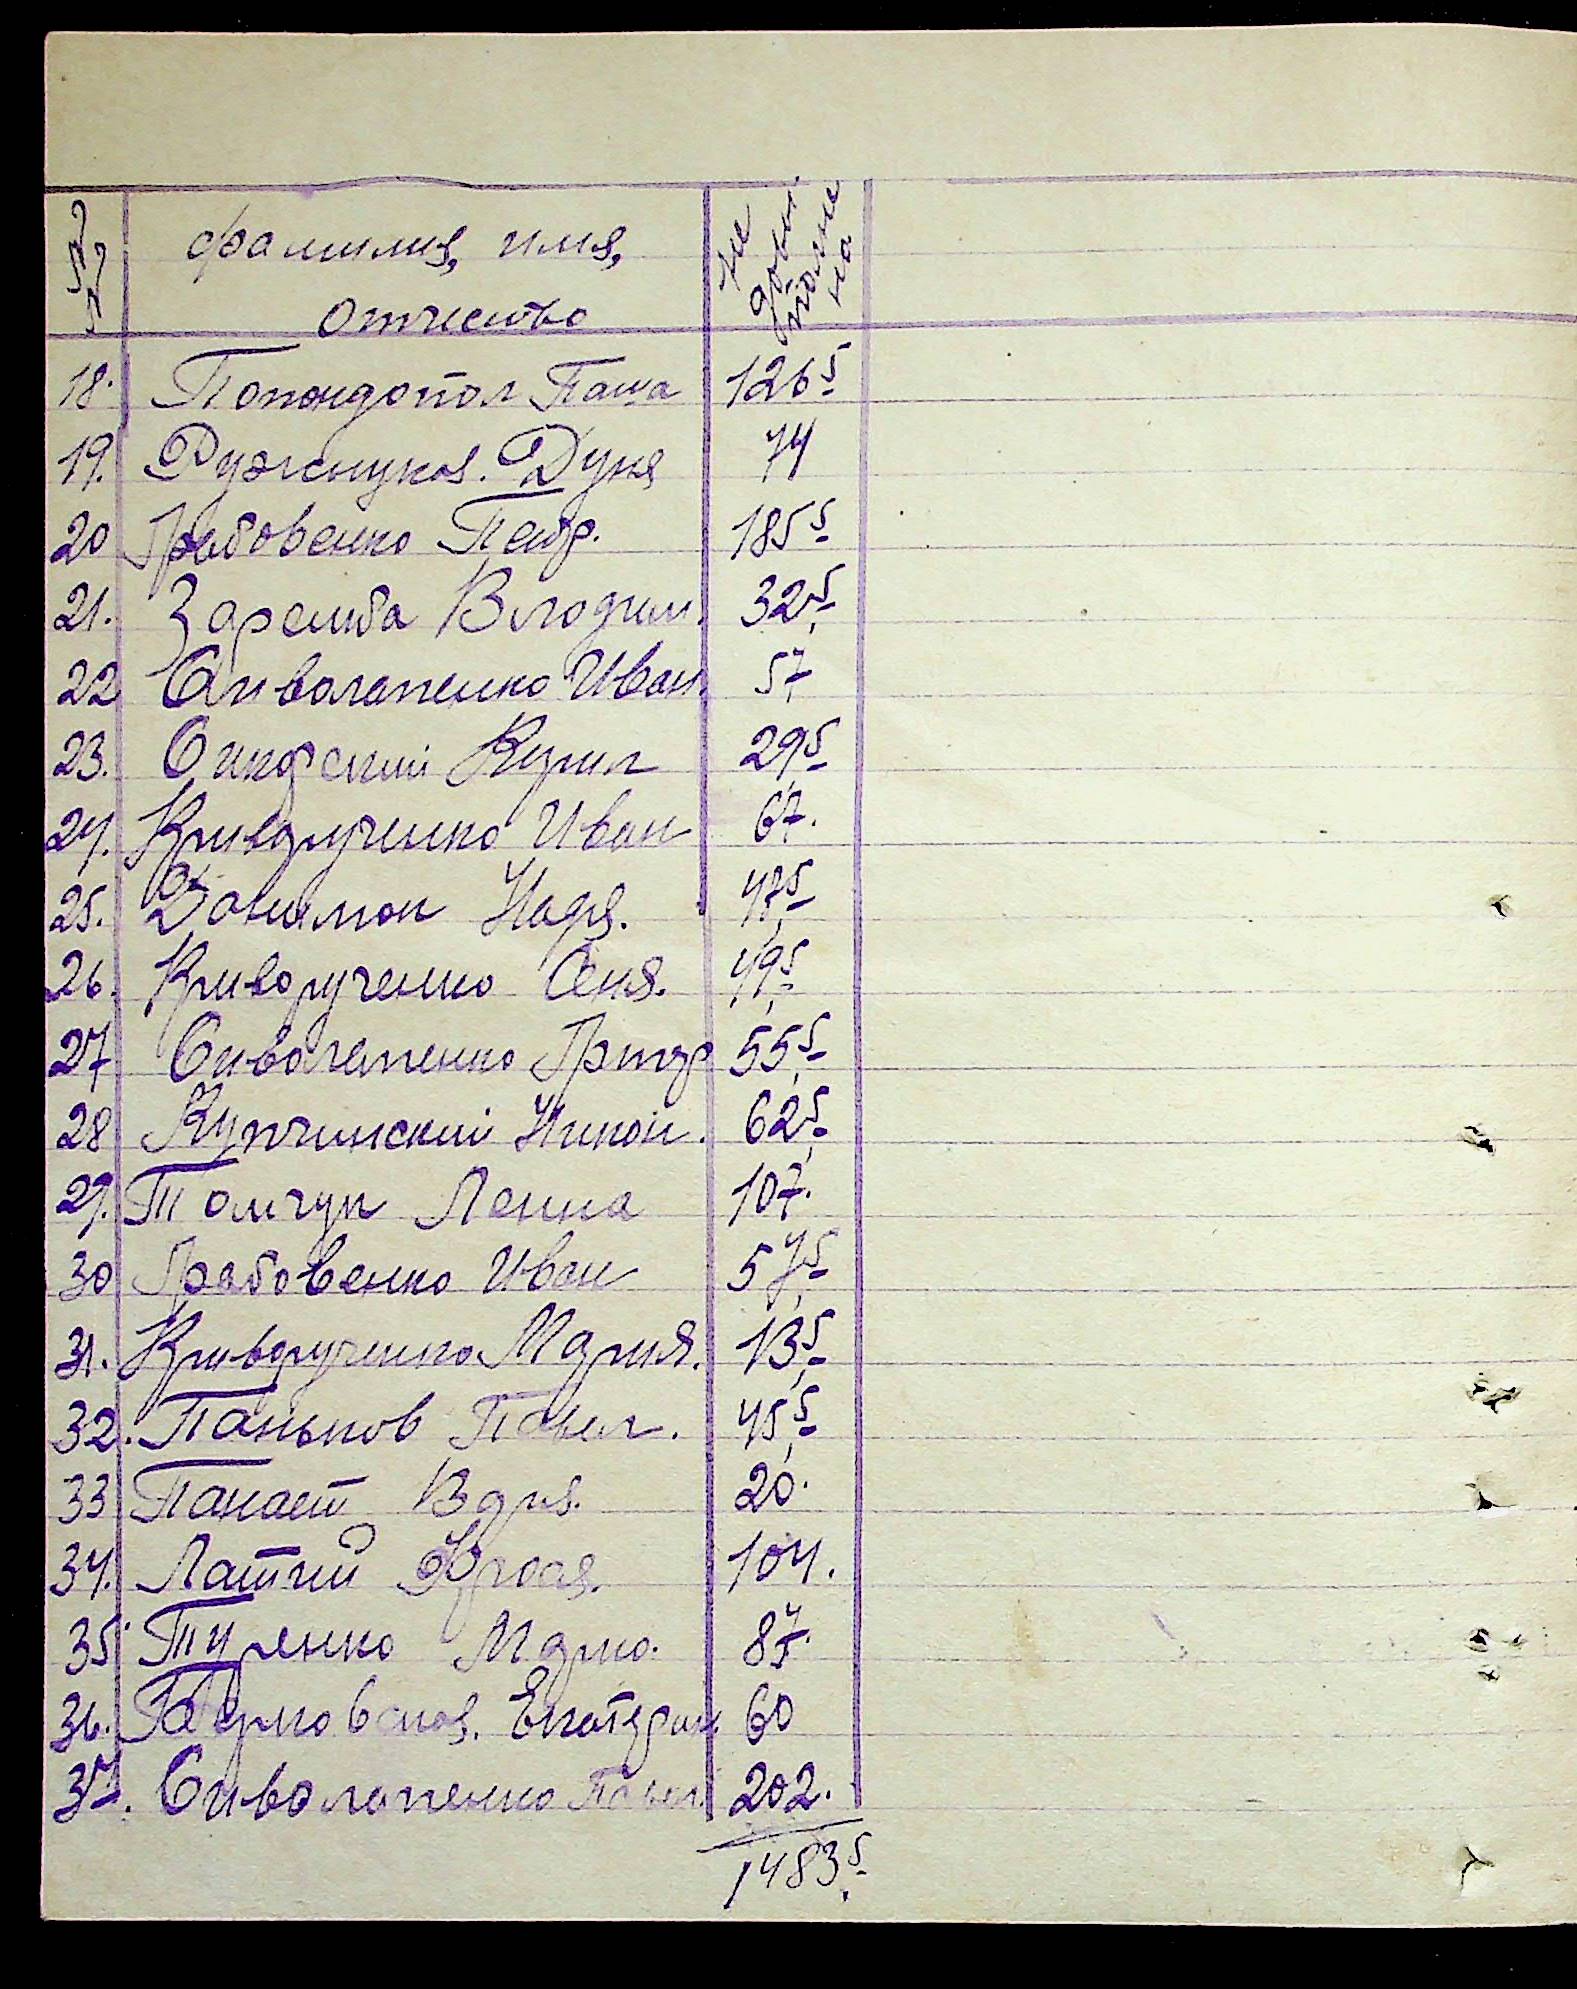 №№
фамилия, имя,
отчество
18. Попондопол Паша 126⁵
19. Ружицкая. Дуня 74
20 Грабовенко Петр. 185⁵
21. Заремба Владим. 32⁵
22 Сиволапенко Иван. 57
23. Сикорский Кирил 29⁵
24. Криворученко Иван 67.
25. Надя. 47⁵
26. Криворученко Сеня. 49⁵
27 Сиволапенко Григор 55⁵
28 Купчинский Никон. 62⁵
29. Томчук Ленна 107.
30 Грабовенко Иван 57⁵
31. Криворученко Мария. 13⁵
32. Паньков Павел. 45⁵
33 Панаст Варя. 20.
34. Латий 104.
35 Туренко Марио. 87.
36. Екатерин. 60
37. Сиволапенко Павел. 202.
1483⁵